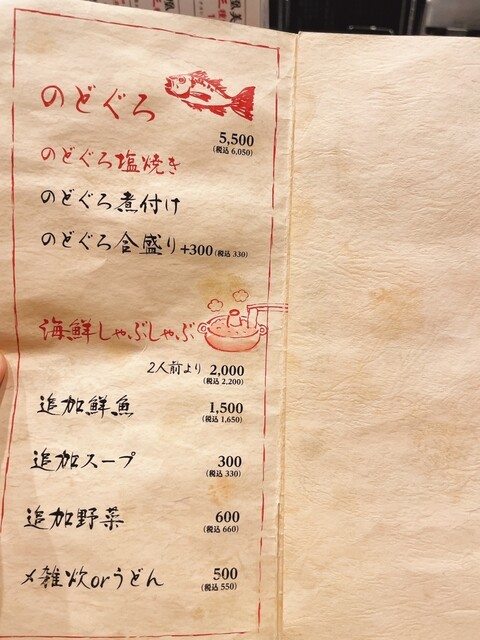 のどぐろ
5,500
(税込 6,050)
のどぐろ塩焼き
のどぐろ煮付け
のどぐろ合盛り+300(税込 330)
海鮮しゃぶしゃぶ
2人前より 2,000
(税込 2,200)
追加鮮魚 1,500
(税込 1,650)
追加スープ 300
(税込 330)
追加野菜 600
(税込 660)
〆雑炊orうどん 500
(税込 550)